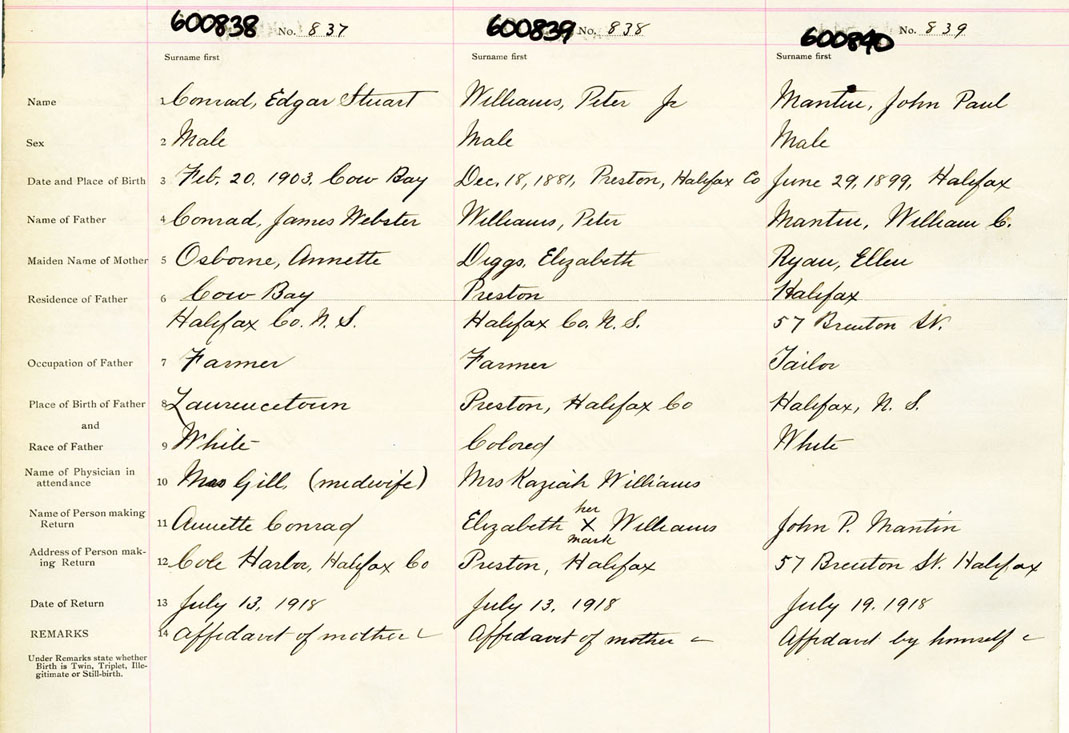 600838 No. 837 600839 No. 838 600840 No. 839
Surname first Surname first Surname first
Name 1 Conrad, Edgar Stuart Williams, Peter Jr Mantin, John Paul
Sex 2 Male Male Male
Date and Place of Birth 3 Feb. 20, 1903, Cow Bay Dec. 18, 1881, Preston, Halifax Co June 29, 1899, Halifax
Name of Father 4 Conrad, James Webster Williams, Peter Mantin, William C.
Maiden Name of Mother 5 Osborne, Annette Diggs, Elizabeth Ryan, Ellen
Residence of Father 6 Cow Bay Preston Halifax
Halifax Co. N. S. Halifax Co. N. S. 57 Brenton St.
Occupation of Father 7 Farmer Farmer Tailor
Place of Birth of Father 8 Lawrencetown Preston, Halifax Co Halifax, N. S.
and
Race of Father 9 White Colored White
Name of Physician in attendance 10 Mrs Gill, (midwife) Mrs Kaziah Williams
Name of Person making Return 11 Annette Conrad Elizabeth her X mark Williams John P. Mantin
Address of Person making Return 12 Cole Harbor, Halifax Co Preston, Halifax 57 Brenton St. Halifax
Date of Return 13 July 13, 1918 July 13, 1918 July 19, 1918
REMARKS 14 Affidavit of mother Affidavit of mother Affidavit by himself
Under Remarks state whether
Birth is Twin, Triplet, Ille-
gitimate or Still-birth.